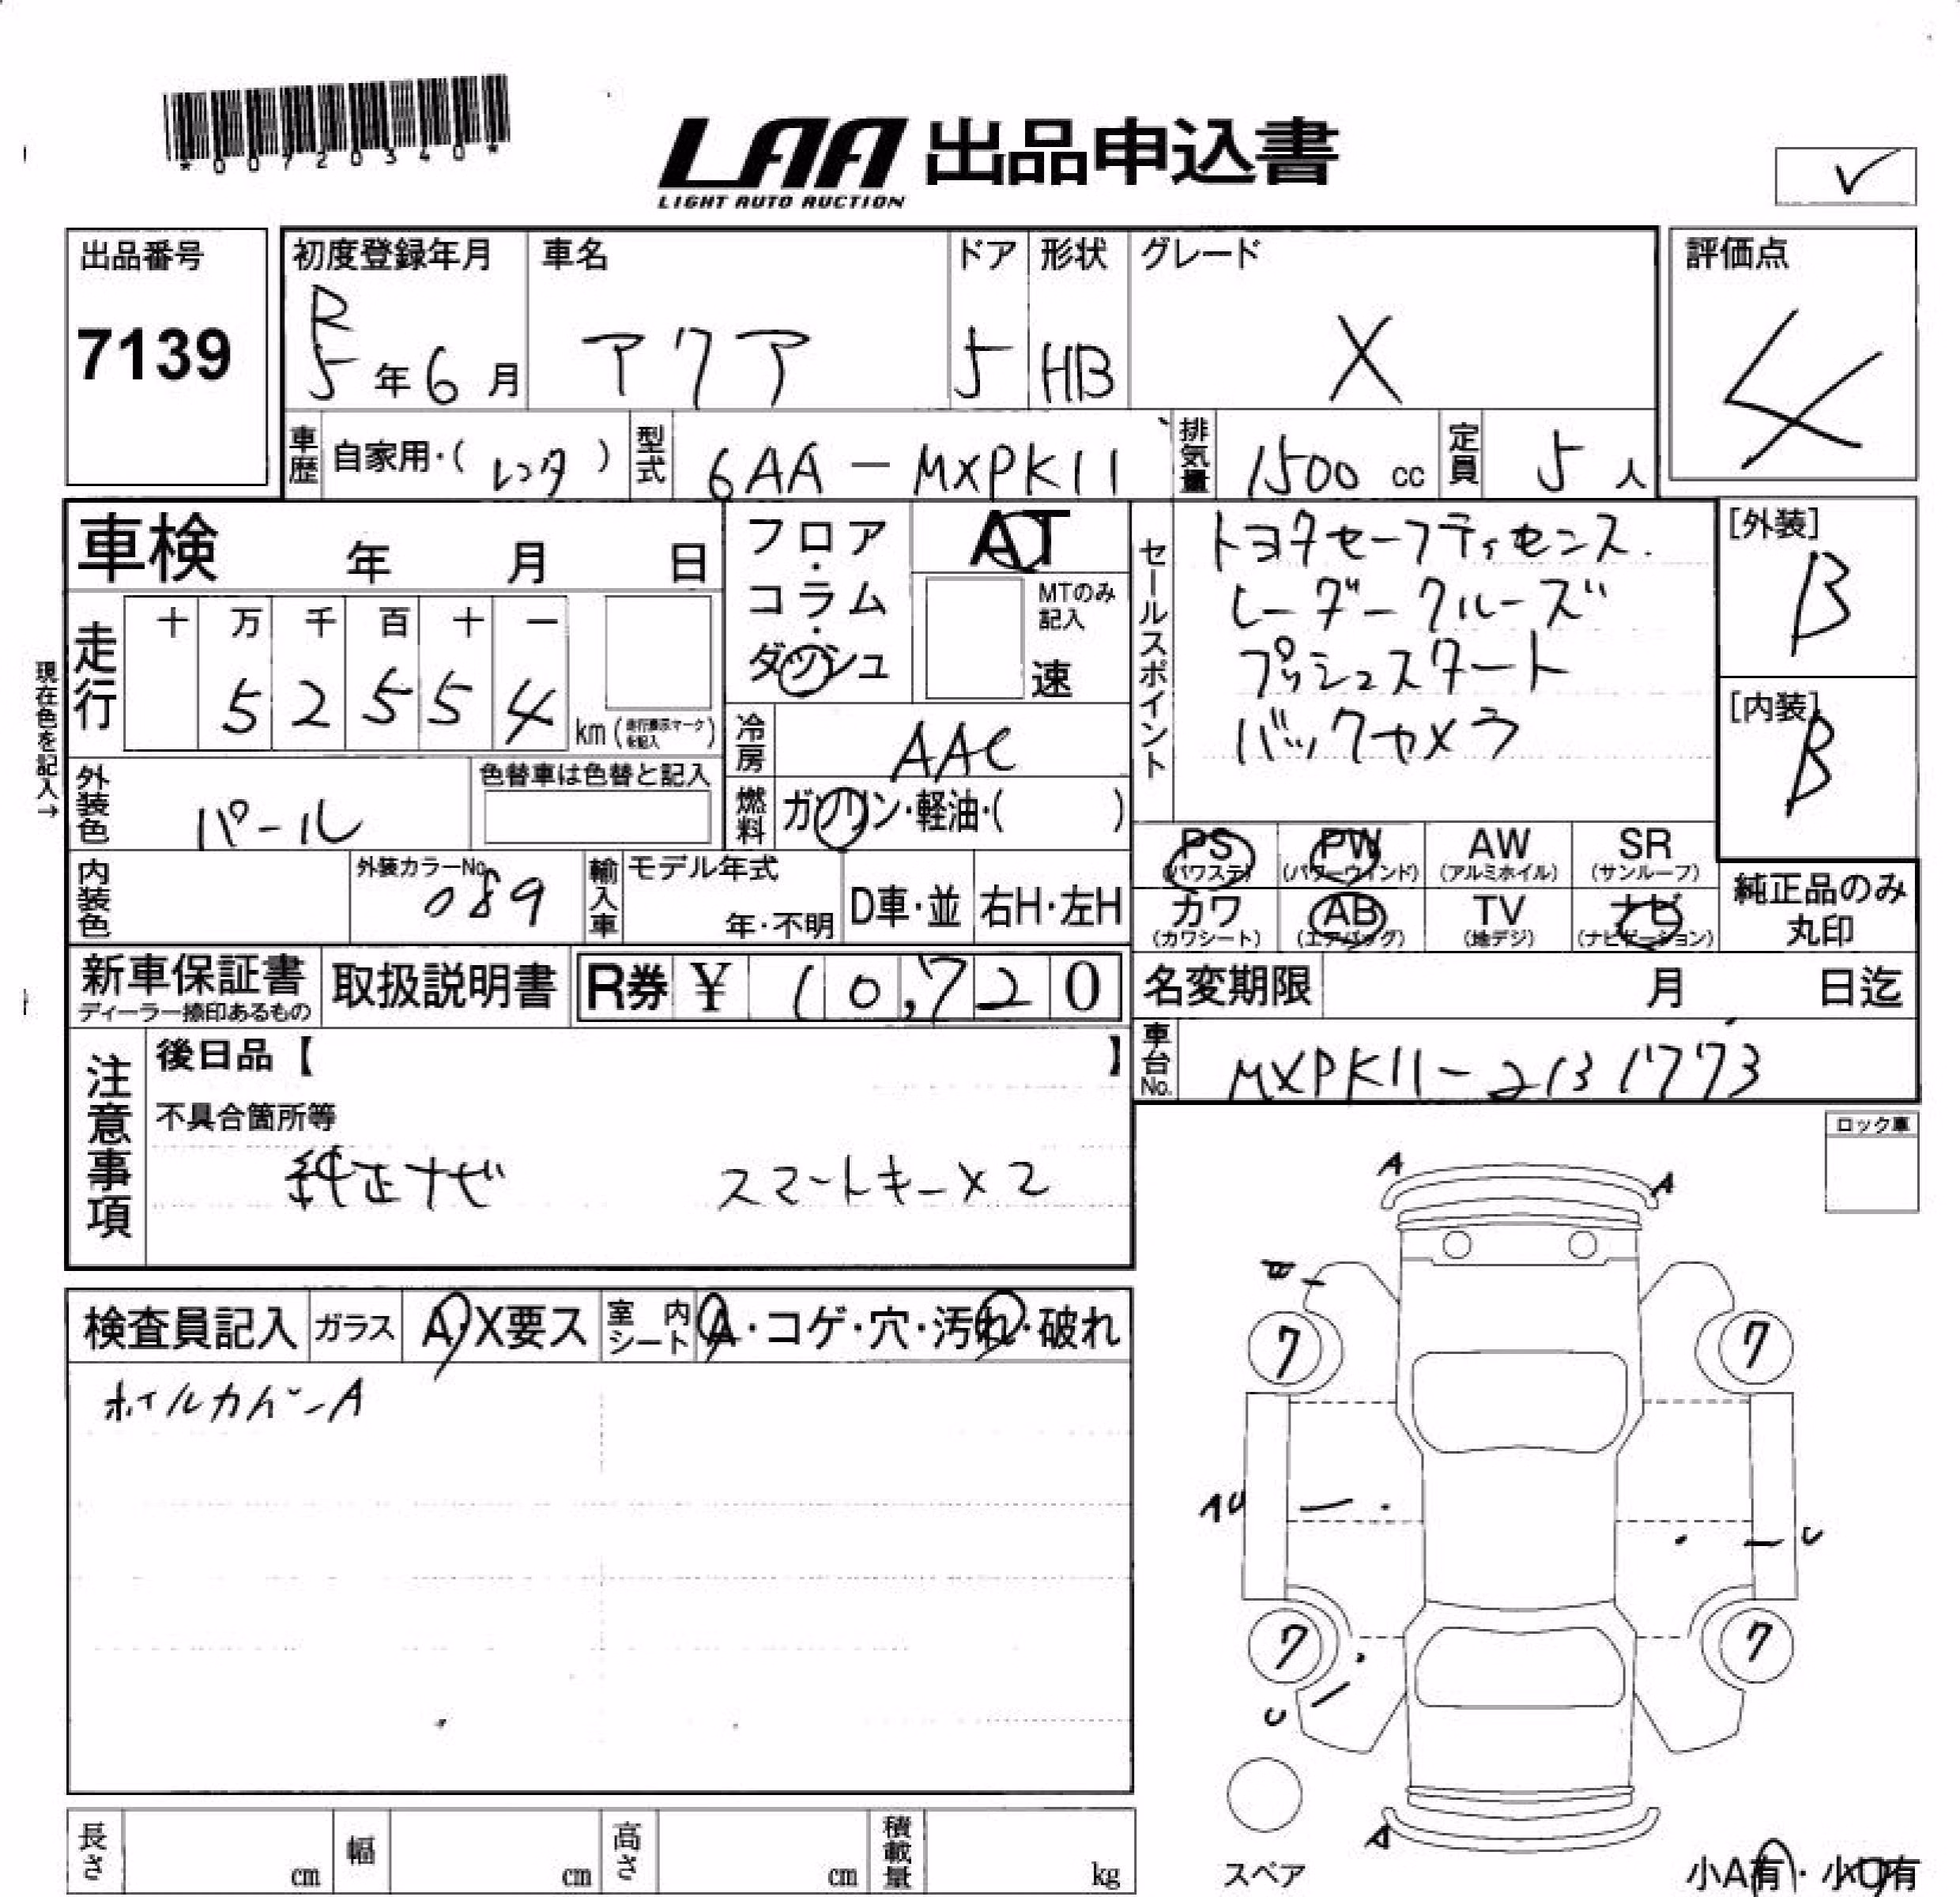 *00720340*
LAA 出品申込書
LIGHT AUTO AUCTION
✓
出品番号
7139
初度登録年月
R5年6月
車名
アクア
ドア
5
形状
HB
グレード
X
評価点
4
車歴 自家用・(レンタ)
型式 6AA-MXPK11
排気量 1500 cc
定員 5人
車検 年 月 日
フロア・コラム・ダッシュ
AT
MTのみ記入
速
セールスポイント
トヨタセーフティセンス.
レーダークルーズ
プッシュスタート
バックカメラ
[外装]
B
[内装]
B
現在色を記入→
走行 十 万 千 百 十 一
52554 km (走行表示マークを記入)
冷房 AAC
外装色 パール
色替車は色替と記入
燃料 ガソリン・軽油・( )
PS (パワステ)
PW (パワーウインド)
AW (アルミホイル)
SR (サンルーフ)
カワ (カワシート)
AB (エアバッグ)
TV (地デジ)
ナビ (ナビゲーション)
純正品のみ丸印
内装色
外装カラーNo. 089
輸入車 モデル年式
年・不明
D車・並
右H・左H
新車保証書
ディーラー捺印あるもの
取扱説明書
R券 ¥ 10,720
名変期限 月 日迄
車台No. MXPK11-2131773
注意事項
後日品【 】
不具合箇所等
純正ナビ スマートキー×2
ロック車
検査員記入
ガラス A・X要ス
室内シート A・コゲ・穴・汚れ・破れ
ホイルカバーA
A
A
7
7
AU
U
7
7
U
A
スペア
長さ cm
幅 cm
高さ cm
積載量 kg
小A有・小U有